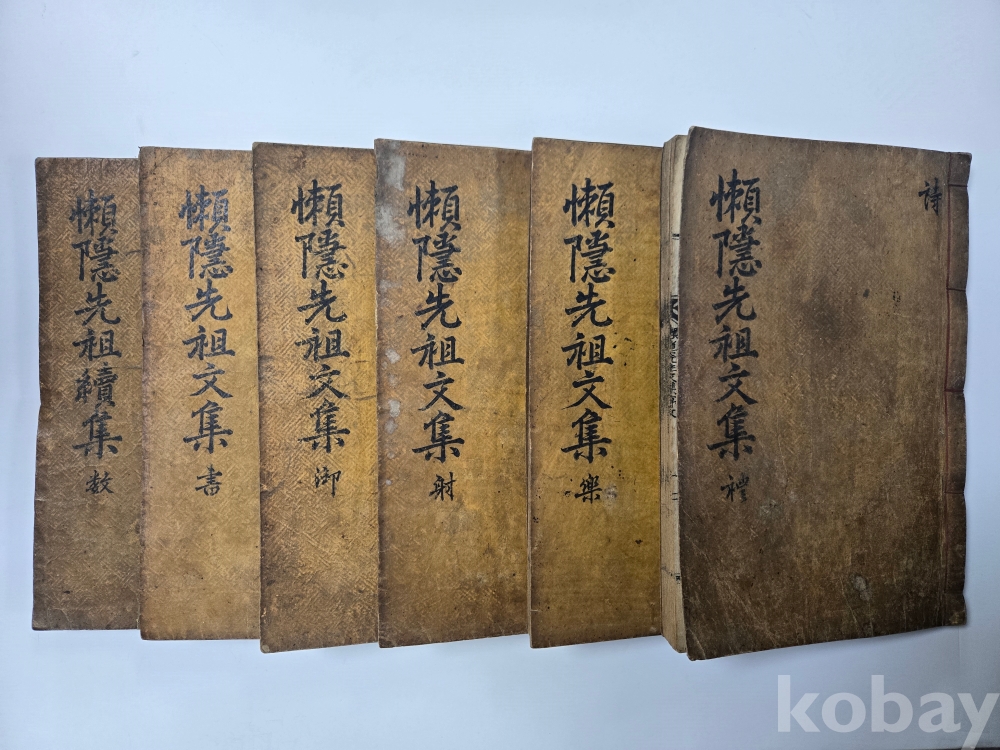 詩
懶隱先祖文集 禮
懶隱先祖文集 樂
懶隱先祖文集 射
懶隱先祖文集 御
懶隱先祖文集 書
懶隱先祖續集 数
kobay